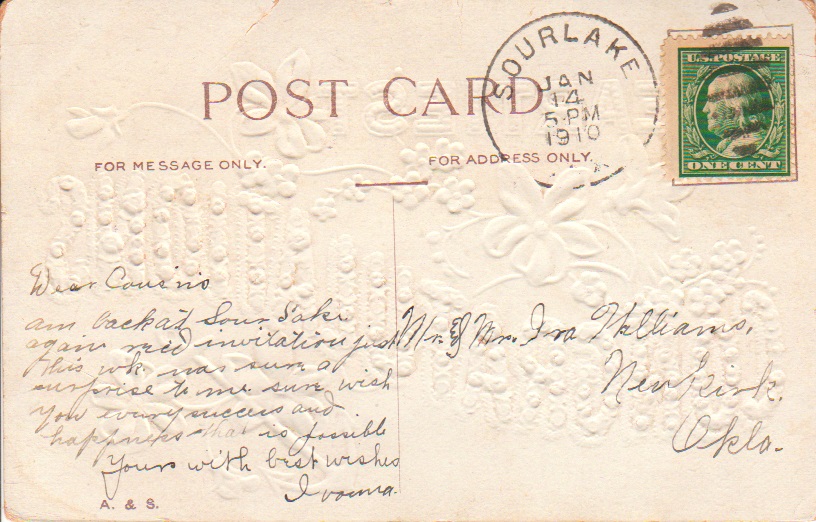 POST CARD
FOR MESSAGE ONLY.
FOR ADDRESS ONLY.
SOURLAKE
JAN
14
5-PM
1910
U.S. POSTAGE
ONE CENT
Dear Cousins
am back at Sour Lake
again recd invitation just
this wk. was sure a
surprise to me sure wish
you every success and
happiness that is possible
Yours with best wishes
Mr. & Mrs. Ira Williams.
Newkirk.
Okla.
A. & S.